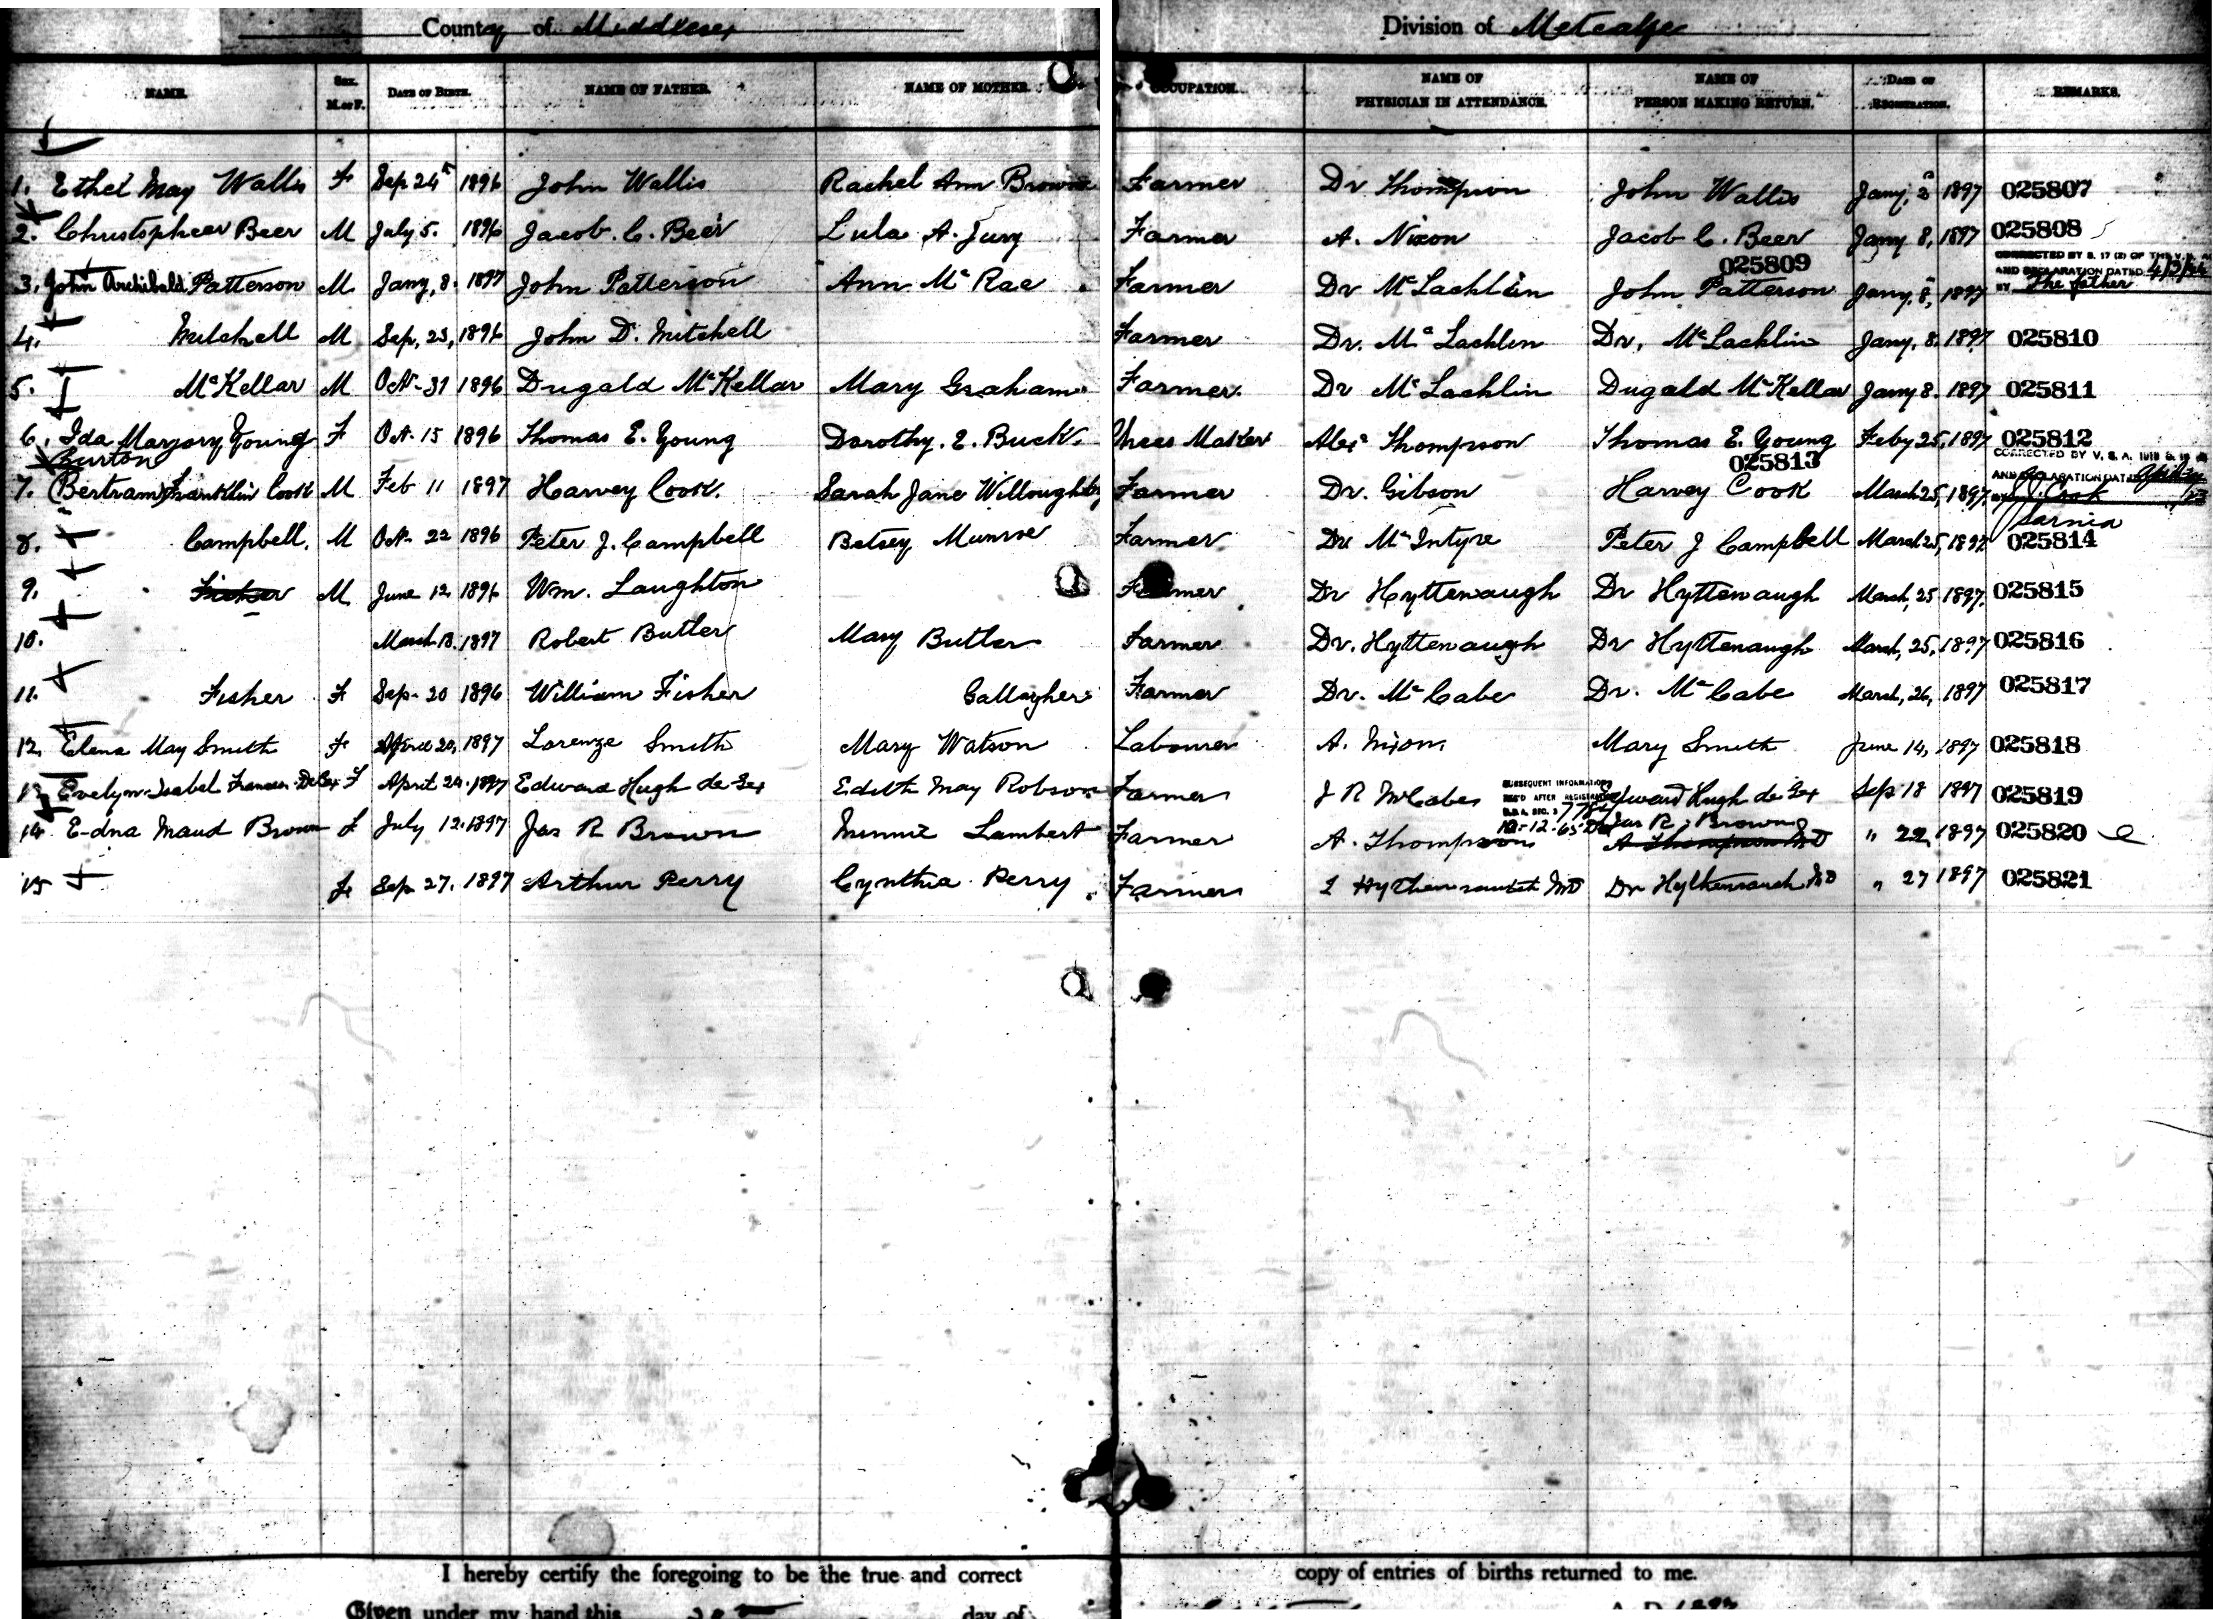 County of Middlesex Division of Metcalfe
NAME. Sex. M. or F. DATE OF BIRTH. NAME OF FATHER. NAME OF MOTHER. OCCUPATION. NAME OF PHYSICIAN IN ATTENDANCE. NAME OF PERSON MAKING RETURN. DATE OF REGISTRATION. REMARKS.
1. Ethel May Wallis F Sep 24th 1896 John Wallis Rachel Ann Browne Farmer Dr Thompson John Wallis Jany. 2 1897 025807
2. Christopheer Beer M July 5. 1896 Jacob. C. Beer Lula A. Jury Farmer A. Nixon Jacob C. Beer Jany 8, 1897 025808
3. John Archibald Patterson M Jany, 8. 1897 John Patterson Ann Mc Rae Farmer Dr McLachlin John Patterson 025809 Jany. 8, 1897 CORRECTED BY S. 17 (2) OF THE V.S. A AND DECLARATION DATED BY The father
4. Mitchell M Sep, 25, 1896 John D. Mitchell Farmer Dr. Mc Lachlin Dr. McLachlin Jany. 8. 1897 025810
5. McKellar M Oct. 31 1896 Dugald McKellar Mary Graham Farmer. Dr McLachlin Dugald McKellar Jany 8. 1897 025811
6. Ida Marjory Young F Oct. 15 1896 Thomas E. Young Dorothy. E. Buck. Chees Maker Alex Thompson Thomas E. Young Feby 25, 1897 025812
Burton
7. Bertram Franklin Cook M Feb 11 1897 Harvey Cook. Sarah Jane Willoughby Farmer Dr. Gibson Harvey Cook 025813 March 25, 1897 CORRECTED BY V. S. A. 1919 AND DECLARATION DATED April by J. Cook Sarnia
8. Campbell. M Oct. 22 1896 Peter J. Campbell Betsey Munroe Farmer Dr McIntyre Peter J Campbell March 25, 1897 025814
9. Fisher M June 12 1896 Wm. Laughton Farmer Dr Hyttenaugh Dr Hyttenaugh March, 25 1897. 025815
10. March 13. 1897 Robert Butler Mary Butler Farmer Dr. Hyttenaugh Dr Hyttenaugh March, 25, 1897 025816
11. Fisher F Sep. 20 1896 William Fisher Gallagher Farmer Dr. McCabe Dr. McCabe March, 26, 1897 025817
12. Elena May Smith F April 20, 1897 Lorenze Smith Mary Watson Labourer A. Nixon Mary Smith June 14, 1897 025818
13 Evelyn Isabel Frances De Gex F April 24. 1897 Edward Hugh de Gex Edith May Robson Farmer J R McCabe SUBSEQUENT INFORMATION REC'D AFTER REGISTRATION 10-12-65 Edward Hugh de Gex Sep 18 1897 025819
14 Edna Maud Brown F July 12. 1897 Jas R Brown Minnie Lambert Farmer A. Thompson Jas R. Brown A Thompson MD " 22 1897 025820
15 F Sep 27. 1897 Arthur Perry Cynthia Perry Farmer Dr 27 1897 025821
I hereby certify the foregoing to be the true and correct copy of entries of births returned to me.
Given under my hand this day of